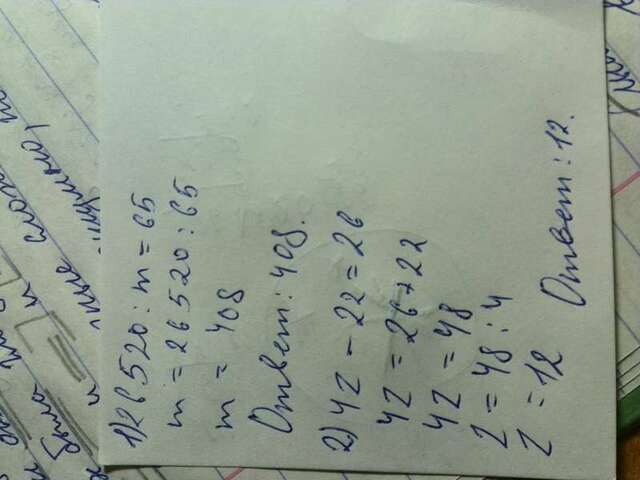 1) 26520 : m = 65
m = 26520 : 65
m = 408
Ответ: 408.
2) 4z - 22 = 26
4z = 26 + 22
4z = 48
z = 48 : 4
z = 12
Ответ: 12.